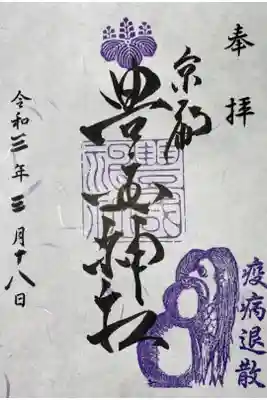 奉拝
京都
豊国神社
令和三年三月十八日
疫病退散